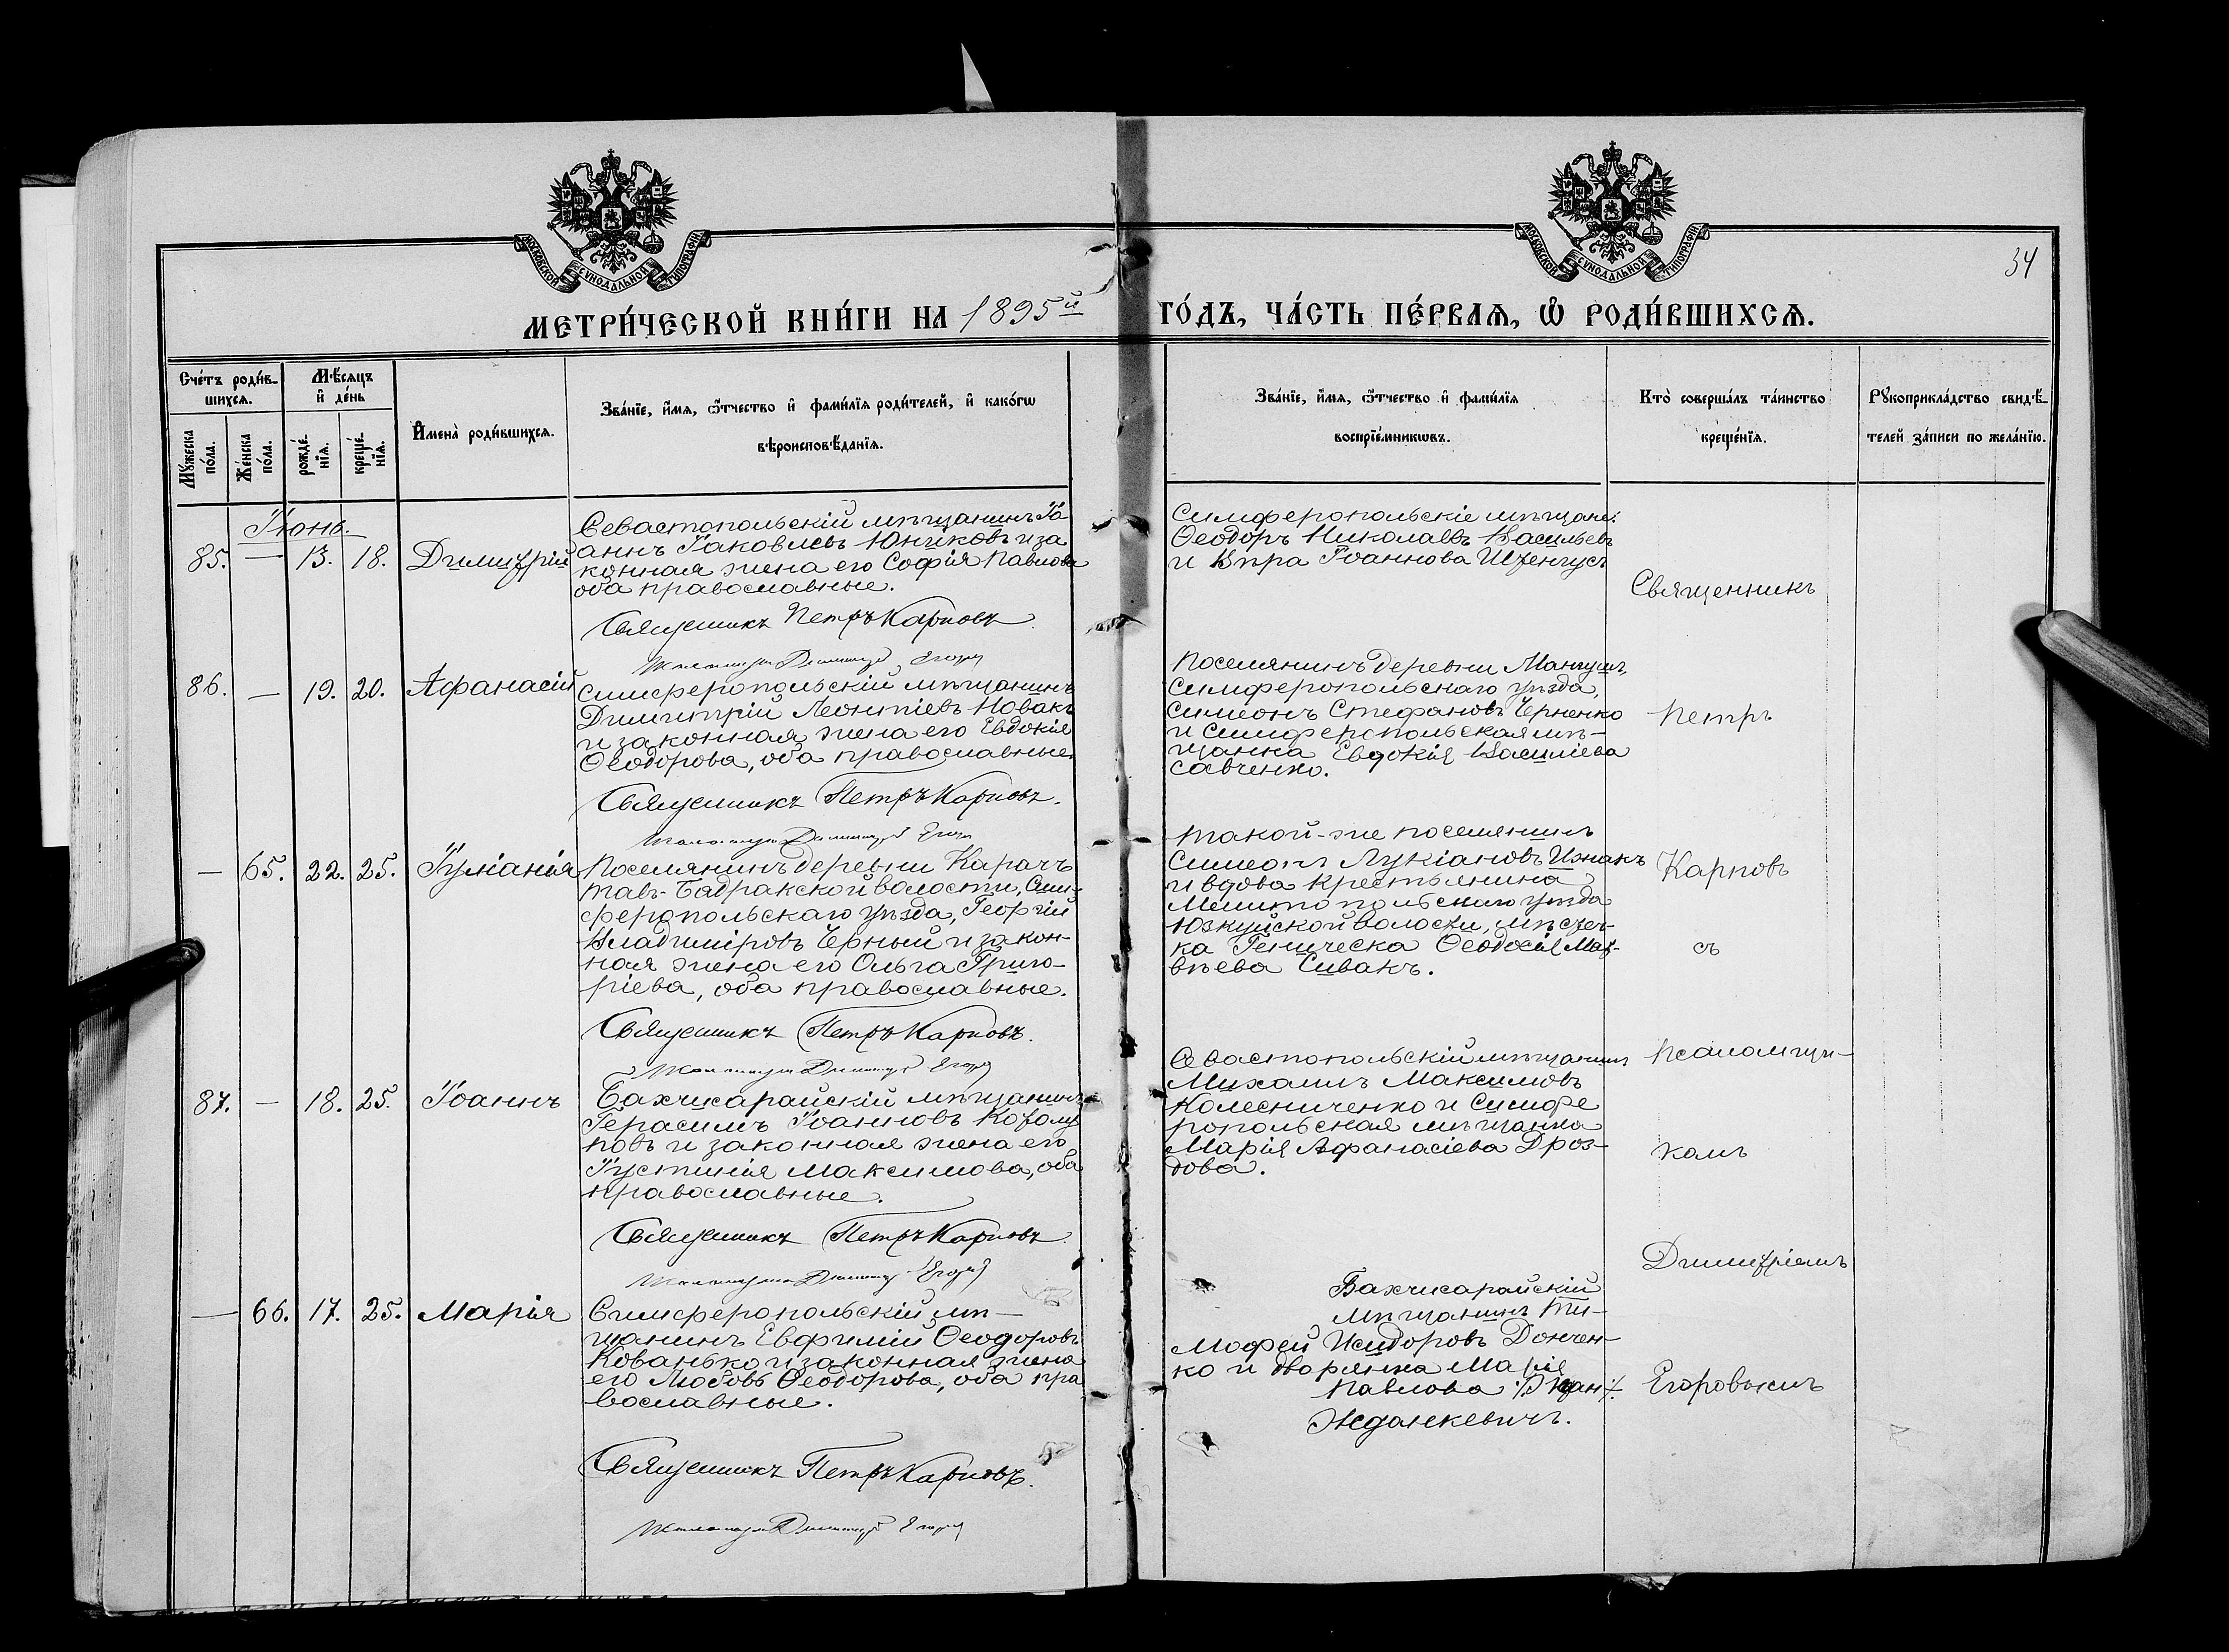 34
МОСКОВСКОЙ СѴНОДАЛЬНОЙ ТИПОГРАФІИ
МОСКОВСКОЙ СѴНОДАЛЬНОЙ ТИПОГРАФІИ
МЕТРИ́ЧЕСКОЙ КНИ́ГИ НА 1895й ГО́ДЪ, ЧА́СТЬ ПЕ́РВАѦ, Ѽ РОДИ́ВШИХСѦ.
Сче́тъ роди́в-
шихсѧ.
Мꙋ́жеска по́ла.
Же́нска по́ла.
Мѣ́сѧцъ
и҆ де́нь
рожде́-
нїѧ.
креще́-
нїѧ.
И҆мена̀ роди́вшихсѧ.
Зва́нїе, и҆́мѧ, ѻ҆́тчество и҆ фами́лїѧ роди́телей, и҆ како́гѡ
вѣроисповѣ́данїѧ.
Зва́нїе, и҆́мѧ, ѻ҆́тчество и҆ фами́лїѧ
воспрїе́мникѡвъ.
Кто̀ соверша́лъ та́инство
креще́нїѧ.
Рꙋкоприкла́дство свидѣ́-
телей за́писи по жела́нїю.
Іюнь.
85. — 13. 18. Димитрій
Севастопольскій мѣщанинъ Іо
аннъ Іаковлевъ Юниковъ и за
конная жена его Софія Павлова
оба православные.
Священникъ Петръ Карповъ
Псаломщикъ Димитрій Егоров
Симферопольскіе мѣщане:
Ѳеодоръ Николаевъ Васильевъ
и Вѣра Іоаннова
86. — 19. 20. Аѳанасій
Симферопольскій мѣщанинъ
Димитрій Леонтіевъ Новакъ
и законная жена его Евдокія
Ѳеодорова, оба православные.
Священникъ Петръ Карповъ.
Псаломщикъ Димитрій Егоров
Поселянинъ деревни Мангушъ,
Симферопольскаго уѣзда,
Симеонъ Стефановъ Черненко
и Симферопольская мѣ-
щанка Евдокія Василіева
Савченко.
— 65. 22. 25. Іуліанія
Поселянинъ деревни Карачъ
Тавъ-Бадракской волости, Сим-
феропольскаго уѣзда, Георгій
Владиміровъ Черный и закон-
ная жена его Ольга Григо-
ріева, оба православные.
Священникъ Петръ Карповъ.
Псаломщикъ Димитрій Егоров
Такой-же поселянинъ
Симеонъ Лукіановъ Ижакъ
и вдова крестьянина
Мелитопольскаго уѣзда
Юзкуйской волости, мѣстеч-
ка Геническа Ѳеодосія Мат-
вѣева Сивакъ.
87. — 18. 25. Іоаннъ
Бахчисарайскій мѣщанинъ
Герасимъ Іоанновъ
новъ и законная жена его
Іустинія Максимова, оба
православные.
Священникъ Петръ Карповъ
Псаломщикъ Димитрій Егоров
Севастопольскій мѣщанинъ
Михаилъ Максимовъ
Колесниченко и Симфе
ропольская мѣщанка
Марія Аѳанасіева Дроз-
дова.
— 66. 17. 25. Марія
Симферопольскій мѣ-
щанинъ Евфимій Ѳеодоровъ
Кованько и законная жена
его Любовь Ѳеодорова, оба пра
вославные.
Священникъ Петръ Карповъ.
Псаломщикъ Димитрій Егоров
Бахчисарайскій
мѣщанинъ Ти-
моѳей Исидоровъ Дончен-
ко и дворянка Марія
Павлова
Жданкевичъ.
Священникъ
Петръ
Карповъ
съ
Псаломщи-
комъ
Димитріемъ
Егоровымъ